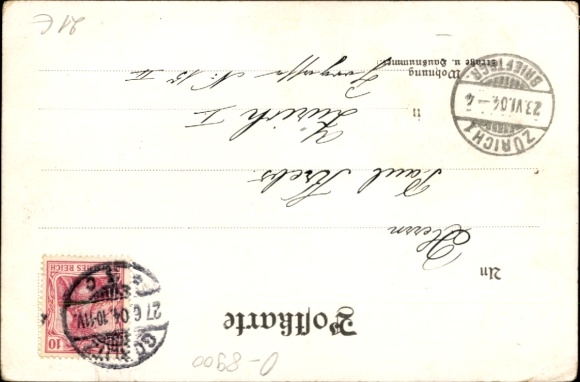 Postkarte
An
Herrn
Paul Krebs
in Zürich I
Wohnung
(Straße u. Hausnummer)
No. 15 II
DEUTSCHES REICH
10
GÖRLITZ
27 6 04. 10-11V.
* 1 c
ZÜRICH 1
23.VI.04.-4
BRIEFTRÄGER
O-8900
21€